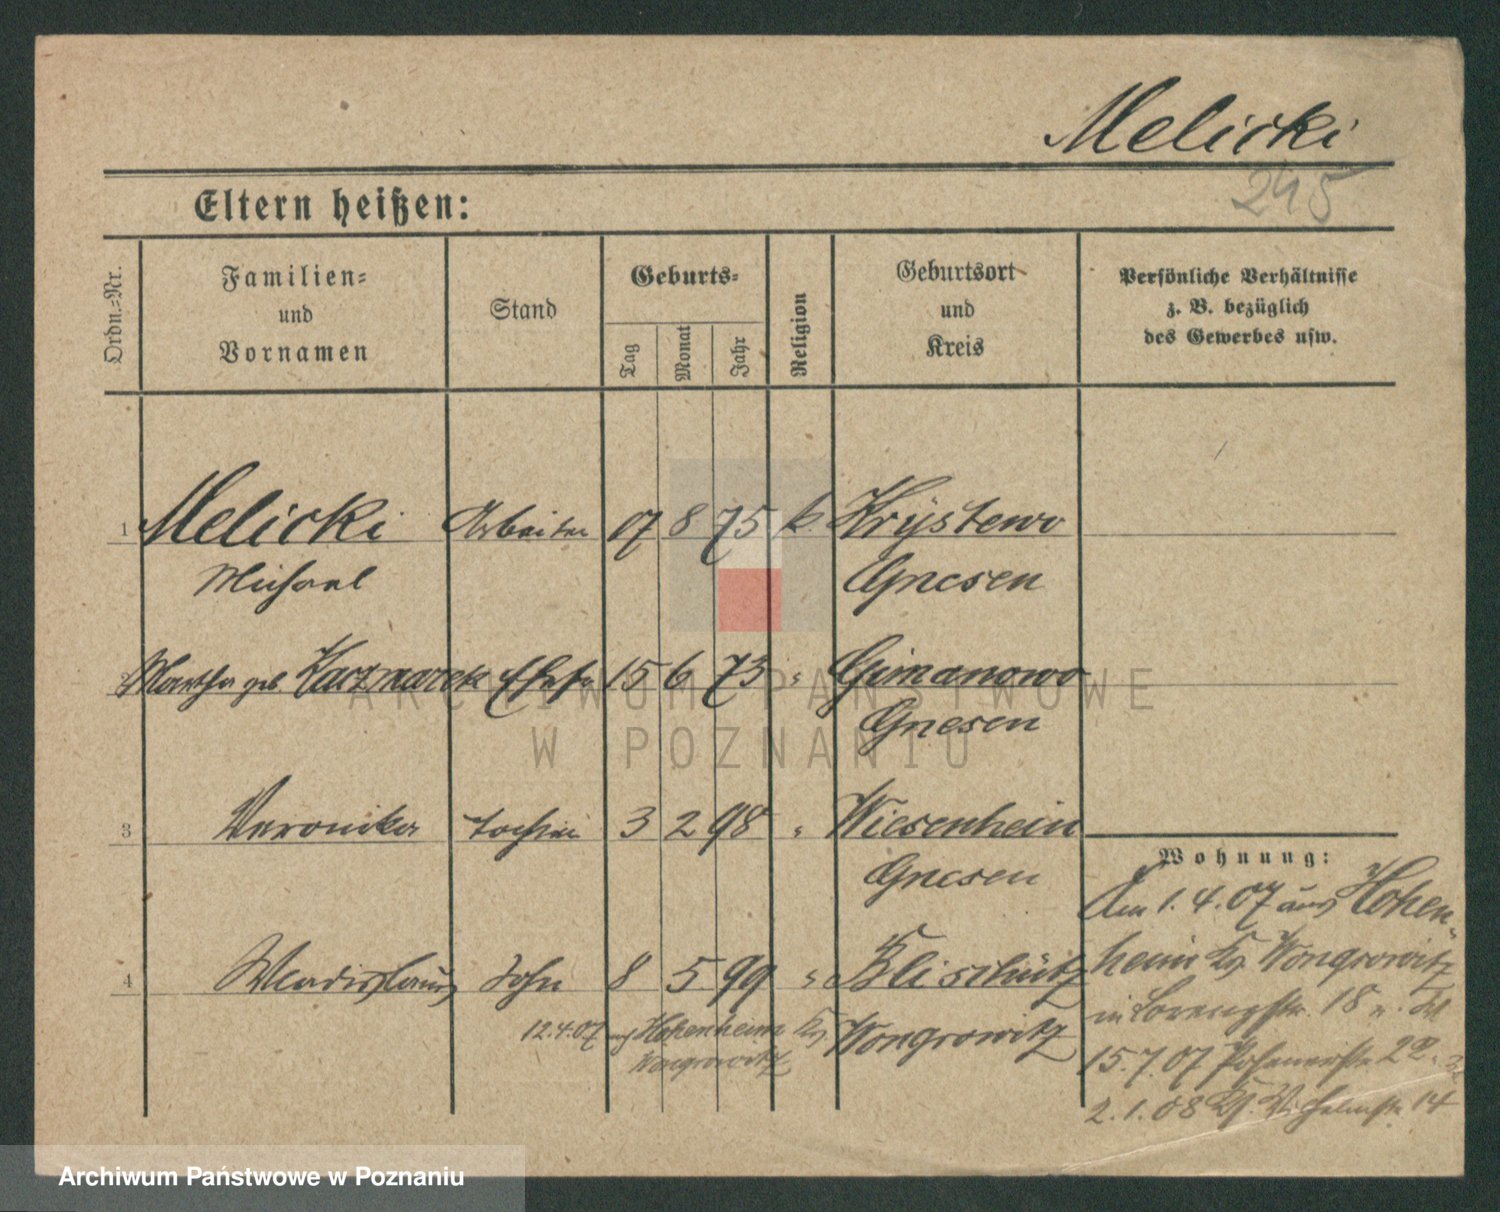 Melicki
245
Eltern heißen:
Ordn.=Nr.
Familien=
und
Vornamen
Stand
Geburts=
Tag
Monat
Jahr
Religion
Geburtsort
und
Kreis
Persönliche Verhältnisse
z. B. bezüglich
des Gewerbes usw.
1 Melicki Arbeiter 07 8 75 k. Krÿstewo
Michael Gnesen
2 Martha geb. Kaczmarek Ehefr 15 6 73 " Gimanowo
Gnesen
3 Veronika Tochter 3 2 98 " Wiesenhein
Gnesen
4 Wladislaus Sohn 8 5 99 " Klischütz
12.4.07 Hohenheim Kr. Wongrowitz
Wongrowitz
Wohnung:
Am 1.4.07 aus Hohen-
heim Kr. Wongrowitz
in Lorenzstr. 18
15.7.07 Posenerstr. 22
2.1.08 Wilhelmstr. 14
ARCHIWUM PAŃSTWOWE
W POZNANIU
Archiwum Państwowe w Poznaniu